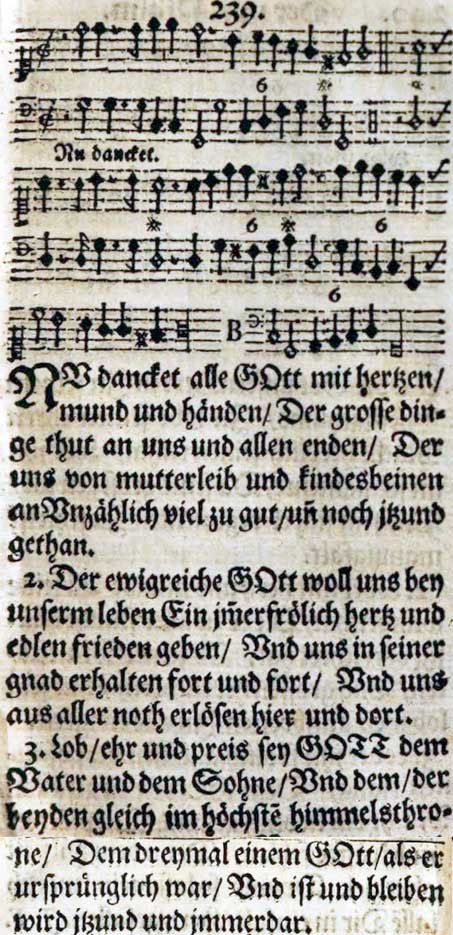 239.
6
Nu dancket.
6 6
6
B
NU dancket alle GOtt mit hertzen/
mund und händen/ Der grosse din-
ge thut an uns und allen enden/ Der
uns von mutterleib und kindesbeinen
an Vnzählich viel zu gut/uñ noch jtzund
gethan.
2. Der ewigreiche GOtt woll uns bey
unserm leben Ein jm̃erfrölich hertz und
edlen frieden geben/ Vnd uns in seiner
gnad erhalten fort und fort/ Vnd uns
aus aller noth erlösen hier und dort.
3. Lob/ehr und preis sey GOTT dem
Vater und dem Sohne/Vnd dem/der
beyden gleich im höchstẽ himmelsthro-
ne/ Dem dreymal einem GOtt/als er
ursprünglich war/ Vnd ist und bleiben
wird jtzund und jmmerdar.